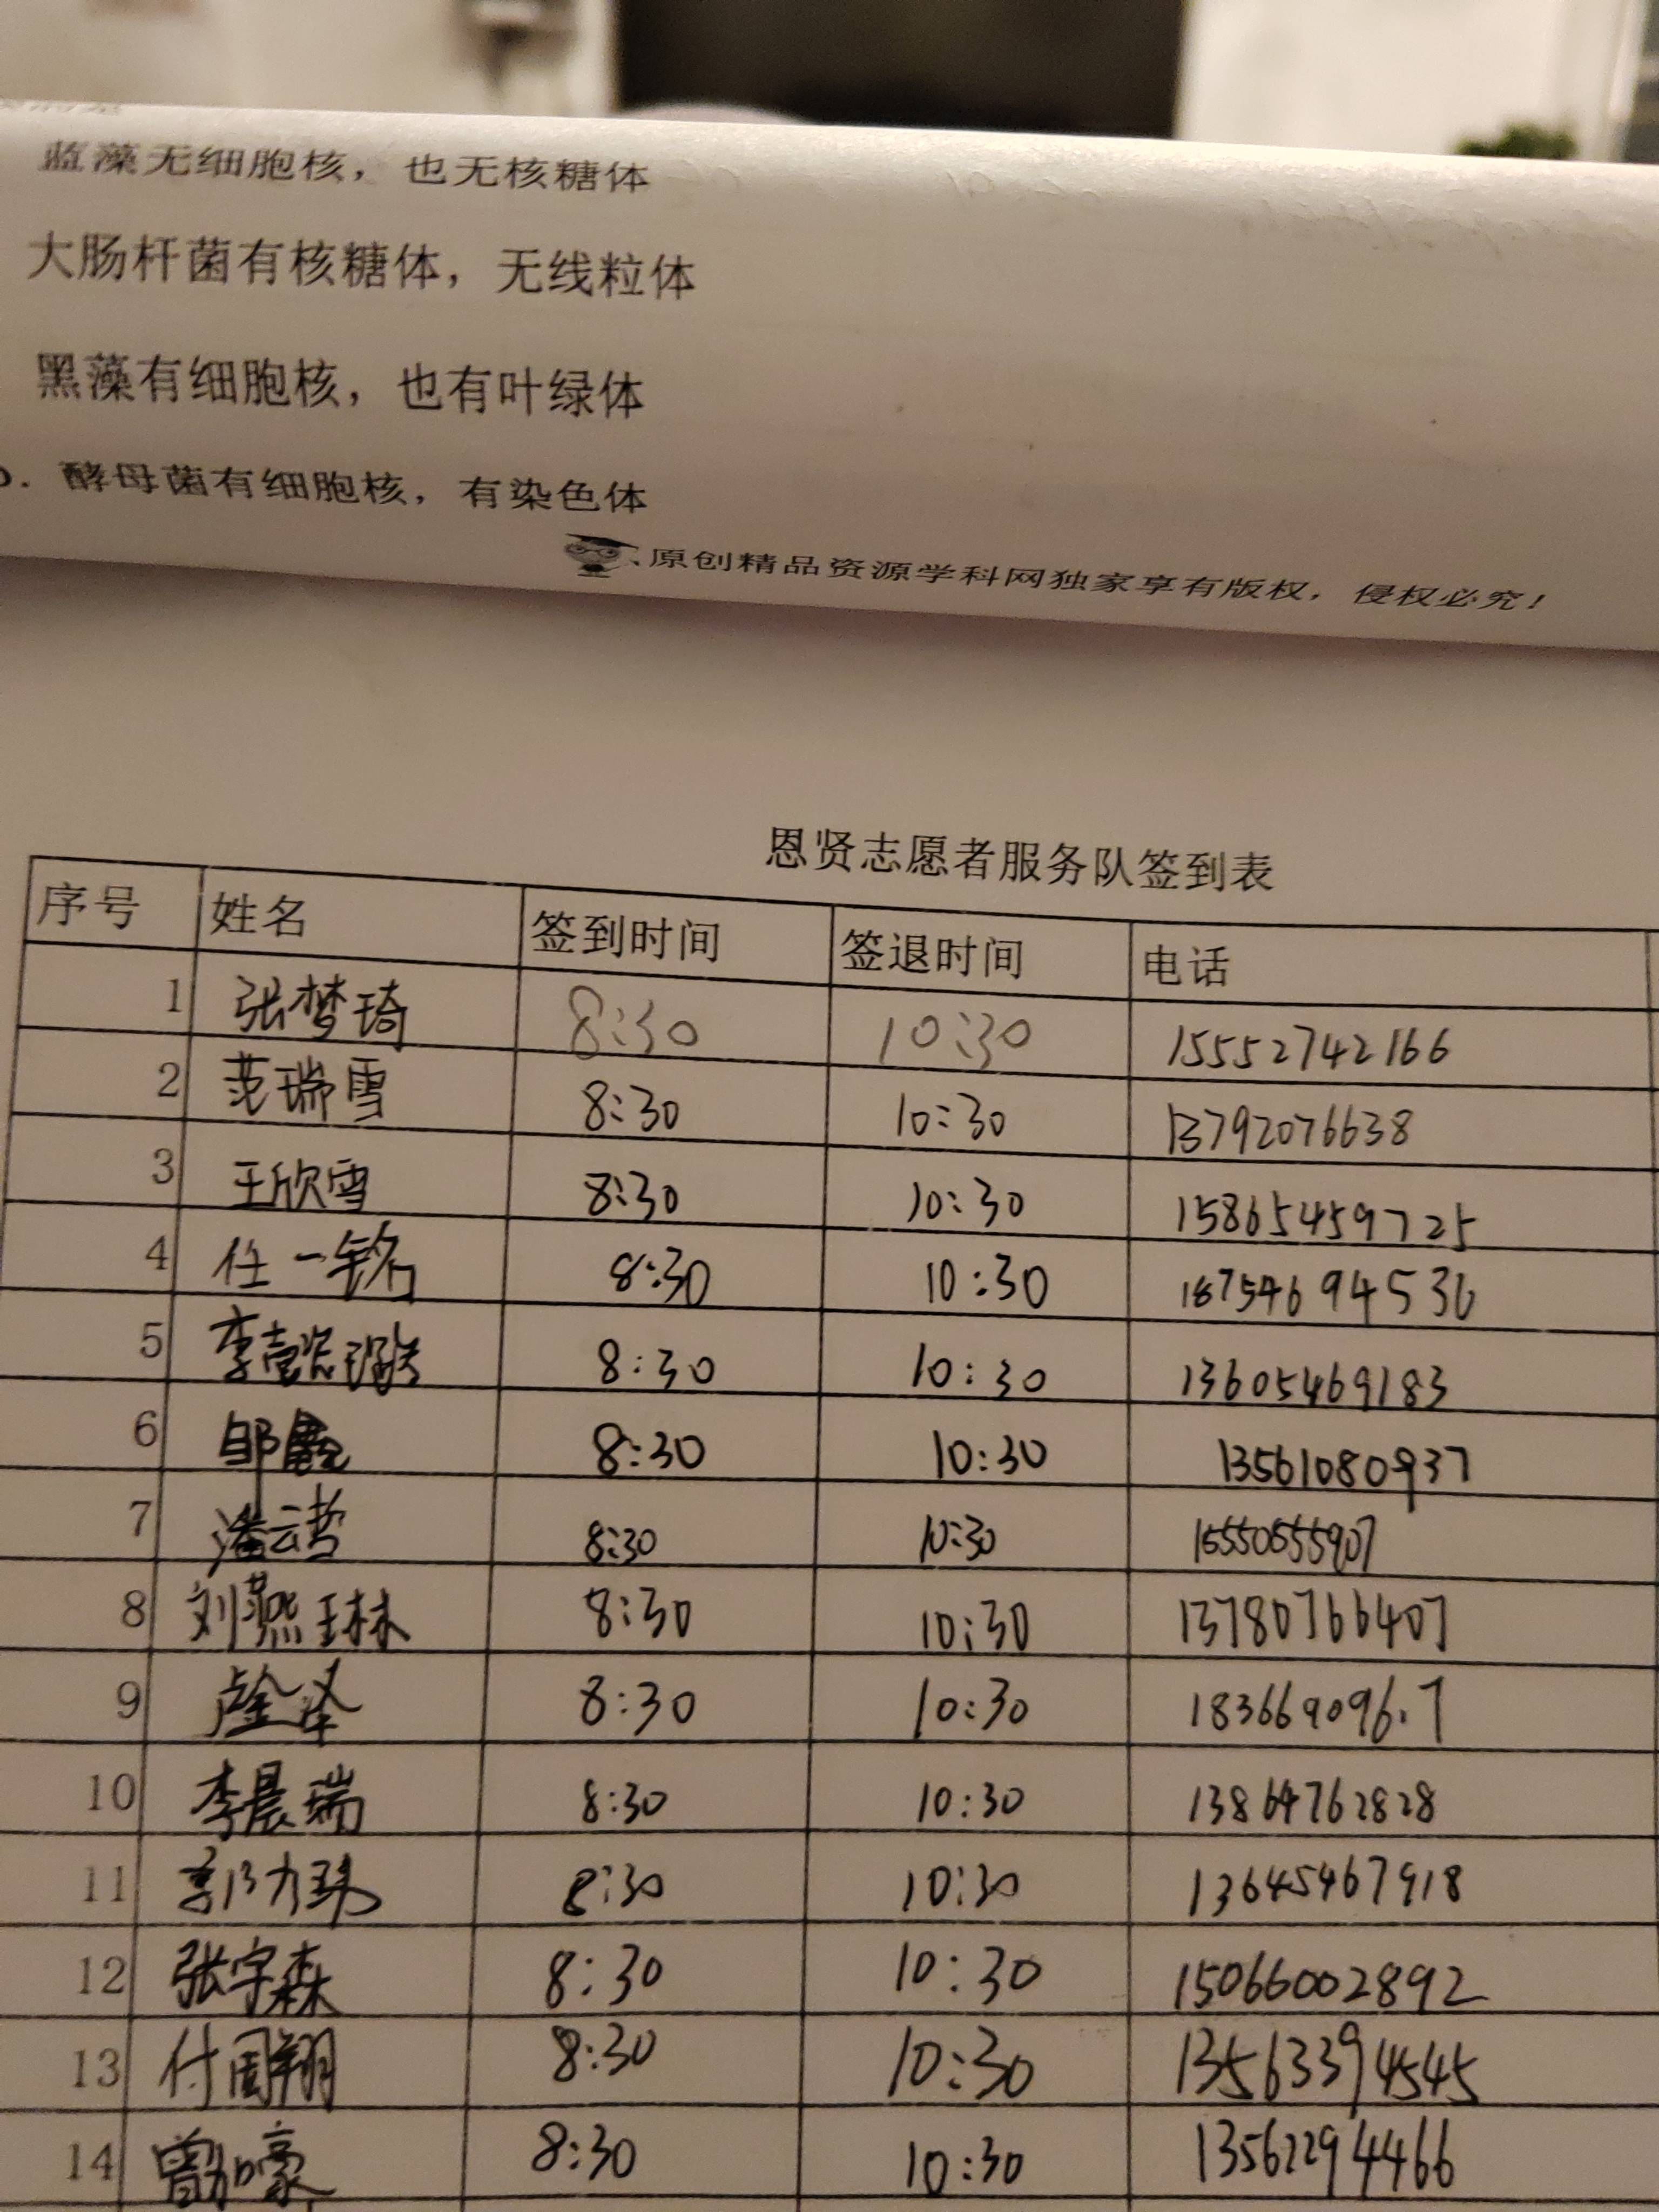 蓝藻无细胞核，也无核糖体
大肠杆菌有核糖体，无线粒体
黑藻有细胞核，也有叶绿体
. 酵母菌有细胞核，有染色体
原创精品资源学科网独家享有版权，侵权必究！
恩贤志愿者服务队签到表
序号 姓名 签到时间 签退时间 电话
1 张梦琦 8:30 10:30 15552742166
2 范瑞雪 8:30 10:30 13792076638
3 王欣雪 8:30 10:30 15865459725
4 任一铭 8:30 10:30 18754694536
5 8:30 10:30 13605469183
6 8:30 10:30 13561080937
7 潘云哲 8:30 10:30
8 刘燕琳 8:30 10:30 13780766407
9 8:30 10:30
10 李晨瑞 8:30 10:30 13864762828
11 8:30 10:30 13645467918
12 张宇森 8:30 10:30 15066002892
13 付周翔 8:30 10:30 13563394545
14 曾加豪 8:30 10:30 13562294466